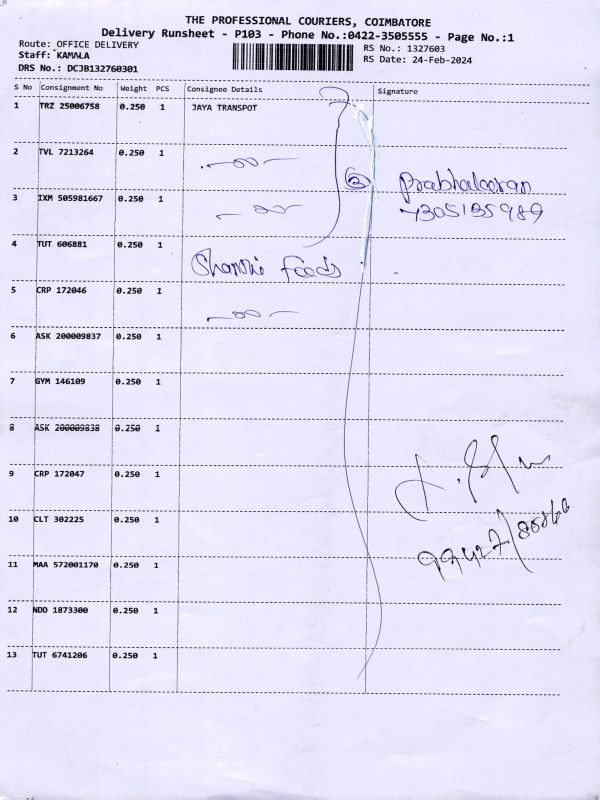 THE PROFESSIONAL COURIERS, COIMBATORE
Delivery Runsheet - P103 - Phone No.:0422-3505555 - Page No.:1
Route: OFFICE DELIVERY
RS No.: 1327603
Staff: KAMALA
RS Date: 24-Feb-2024
DRS No.: DCJB132760301
S No Consignment No Weight PCS Consignee Details Signature
1 TRZ 25006758 0.250 1 JAYA TRANSPOT
2 TVL 7213264 0.250 1
3 IXM 505981667 0.250 1
Prabhakaran
7305135989
4 TUT 606881 0.250 1
Foods
5 CRP 172046 0.250 1
6 ASK 200009837 0.250 1
7 GYM 146109 0.250 1
8 ASK 200009838 0.250 1
9 CRP 172047 0.250 1
10 CLT 302225 0.250 1
11 MAA 572001170 0.250 1
12 NDD 1873300 0.250 1
13 TUT 6741206 0.250 1